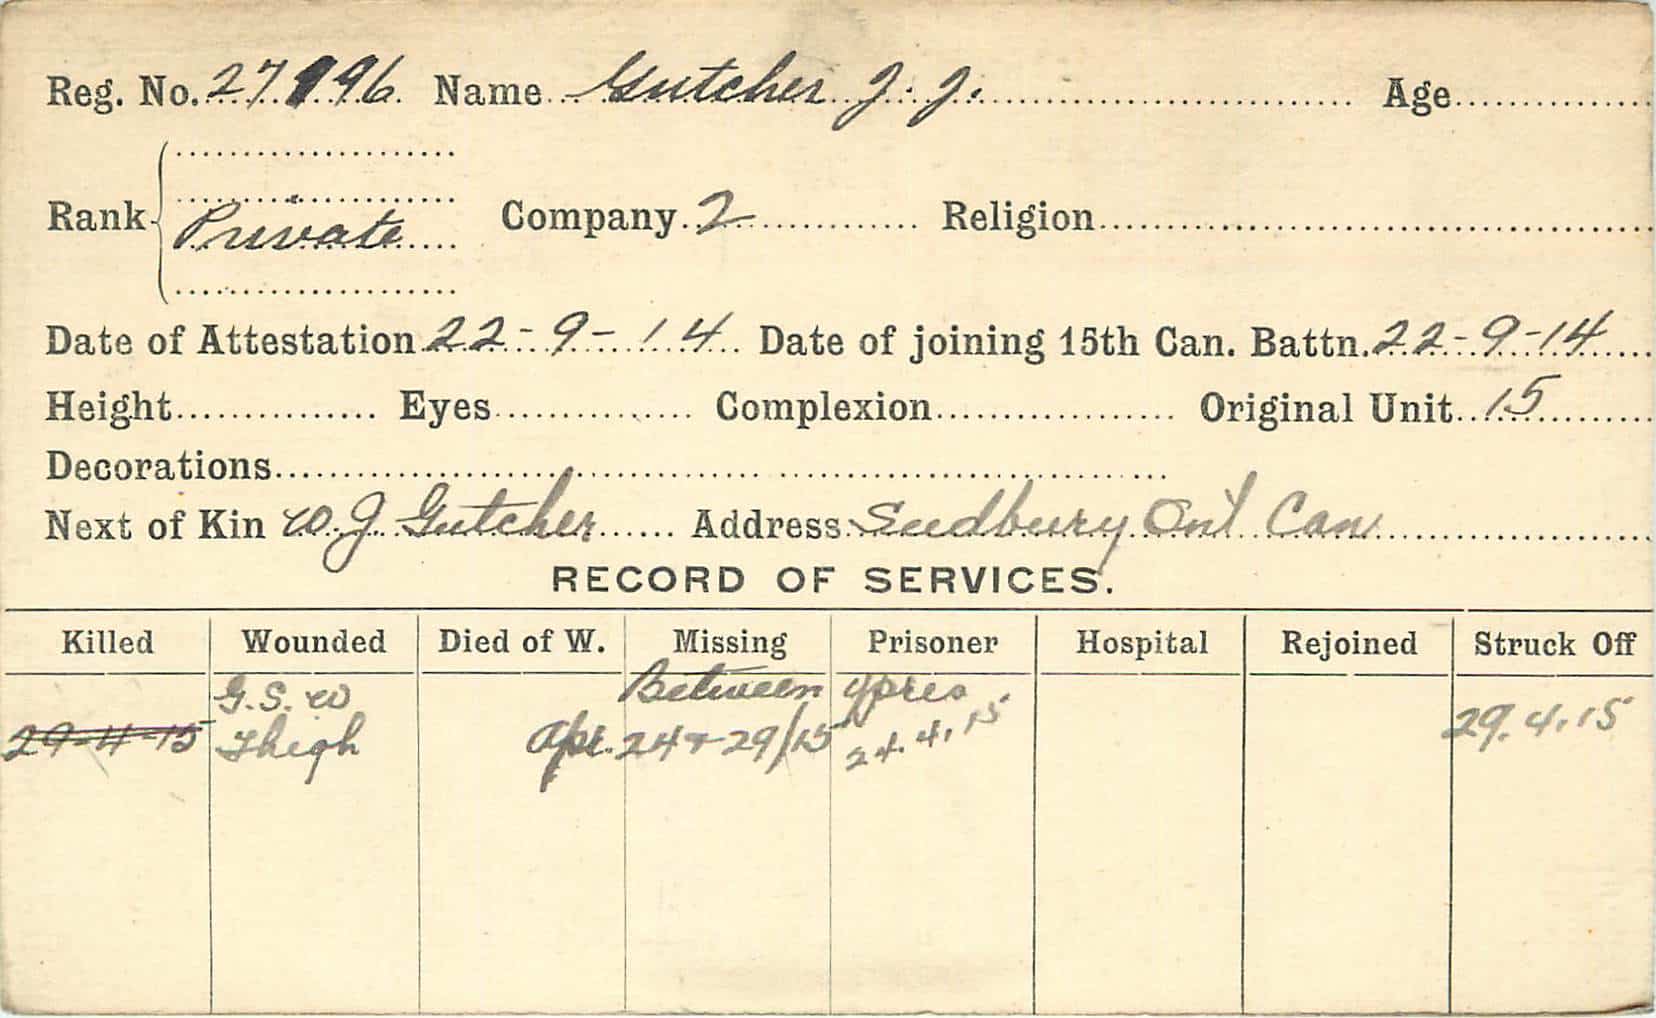 Reg. No. 27996 Name Gutcher J. J. Age
Rank Private Company 2 Religion
Date of Attestation 22-9-14 Date of joining 15th Can. Battn. 22-9-14
Height Eyes Complexion Original Unit 15
Decorations
Next of Kin W. J. Gutcher Address Sudbury Ont Can.
RECORD OF SERVICES.
Killed Wounded Died of W. Missing Prisoner Hospital Rejoined Struck Off
G.S.W Between Ypres
29-4-15 Thigh Apr. 24 + 29/15 24.4.15 29.4.15